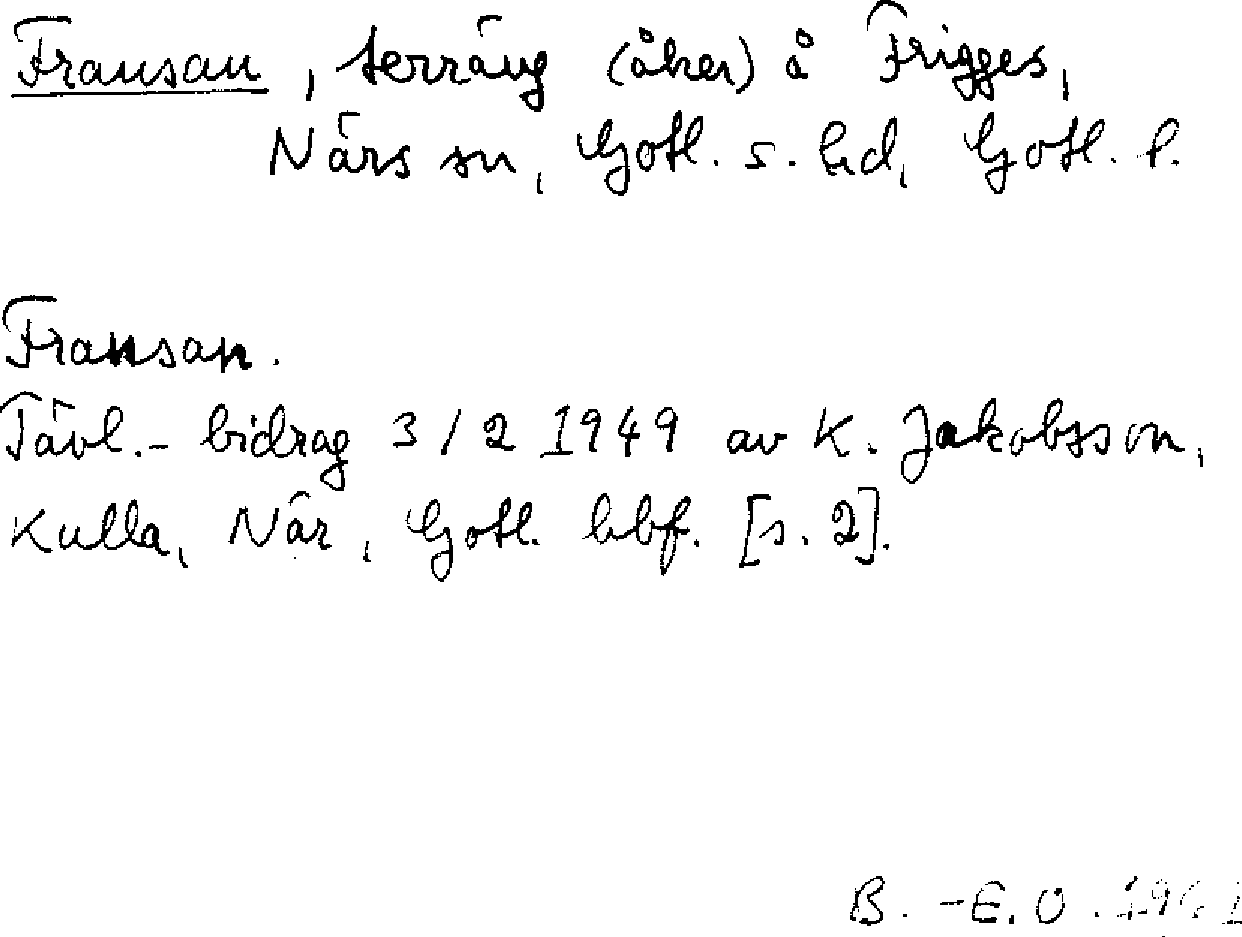 Fransan, terräng (åker) å Frigges,
Närs sn, Gotl. s. hd, Gotl. l.
Fransan.
Tävl.-bidrag 3/2 1949 av K. Jakobsson,
Kulla, När, Gotl. hbf. [s. 2].
B.-E. O.